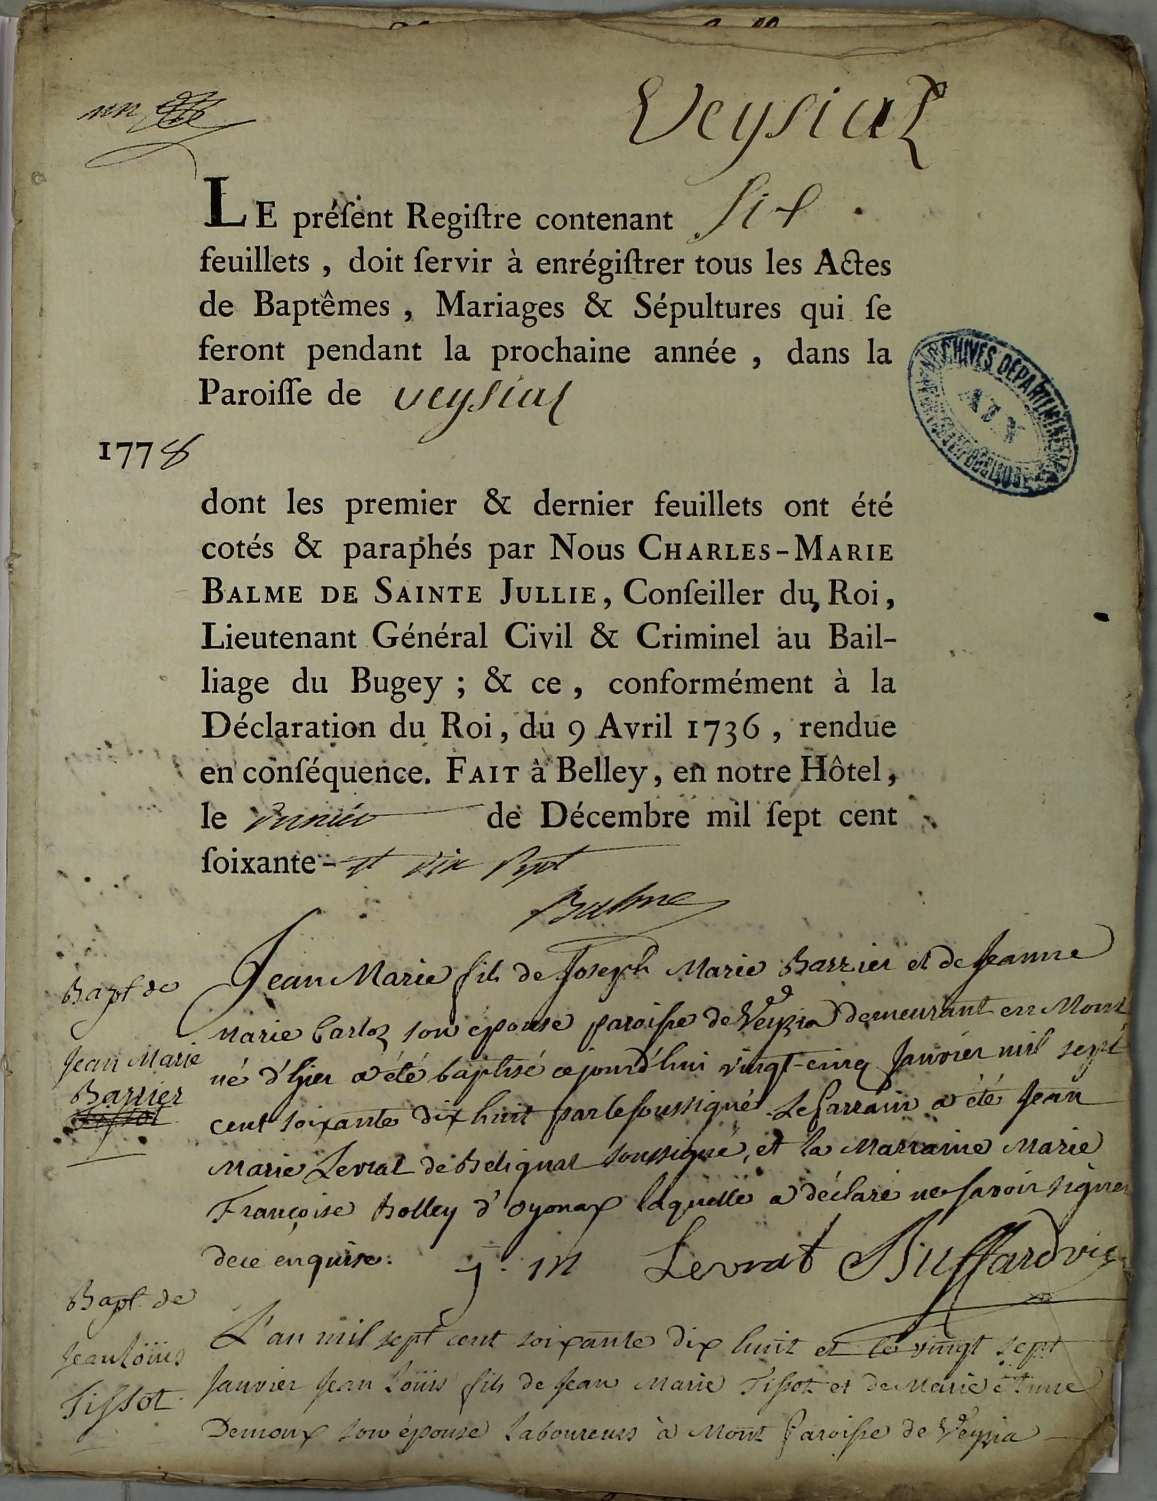 Veysiat
LE préſent Regiſtre contenant six
feuillets, doit ſervir à enrégiſtrer tous les Actes
de Baptêmes, Mariages & Sépultures qui ſe
feront pendant la prochaine année, dans la
Paroiſſe de veysiat
1778
dont les premier & dernier feuillets ont été
cotés & paraphés par Nous CHARLES-MARIE
BALME DE SAINTE JULLIE, Conſeiller du Roi,
Lieutenant Général Civil & Criminel au Bail-
liage du Bugey ; & ce, conformément à la
Déclaration du Roi, du 9 Avril 1736, rendue
en conſéquence. FAIT à Belley, en notre Hôtel,
le dernier de Décembre mil ſept cent
ſoixante-et dix sept
Balme
Bapt. de
Jean Marie
Barrier
Jean Marie fils de Joseph Marie Barrier et de Jeanne
Marie Carloz son epouse paroisse de Veyzia demeurant en Mont
né d'hier a été baptisé ce jourd'hui vingt-cinq Janvier mil sept
cent soixante dix huit par le soussigné. Le parrain a été Jean
Marie Levrat de Belignat soussigné, et la Marraine Marie
Françoise Bolley d'Oyonax laquelle a déclaré ne savoir signer
de ce enquise. j. m Levrat Buffard vic
Bapt. de
Jean Loüis
Tissot
L'an mil sept cent soixante dix huit et le vingt sept
Janvier Jean Loüis fils de Jean Marie Tissot et de Marie Anne
Demoux son épouse laboureurs à Mont Paroisse de Veyzia
ARCHIVES DEPARTEMENTALES
AIN